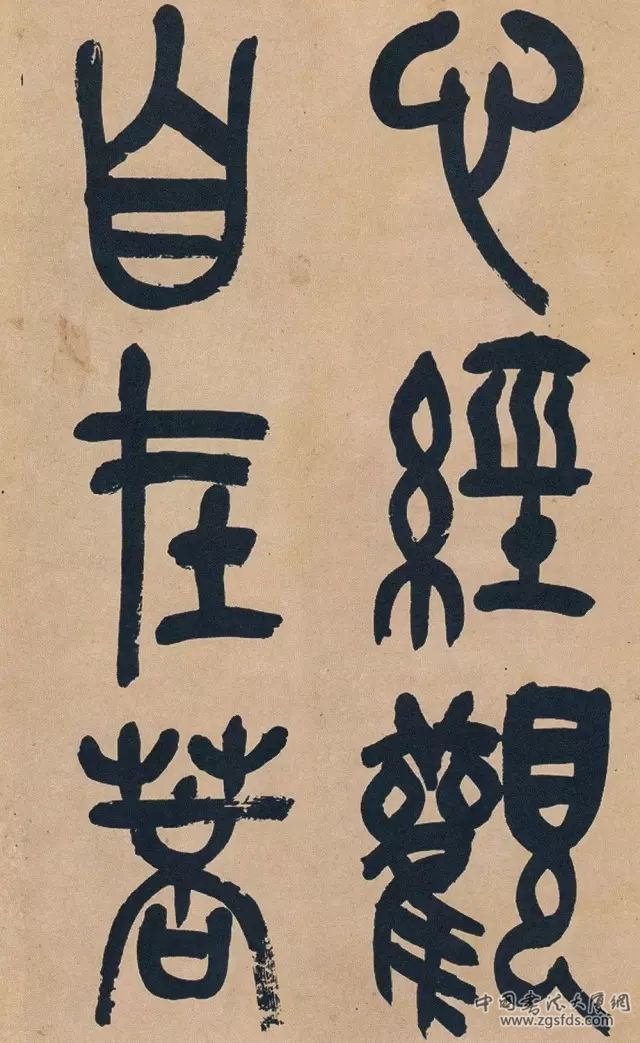 心經觀
自在菩
中国书法大厦网
www.zgsfds.com